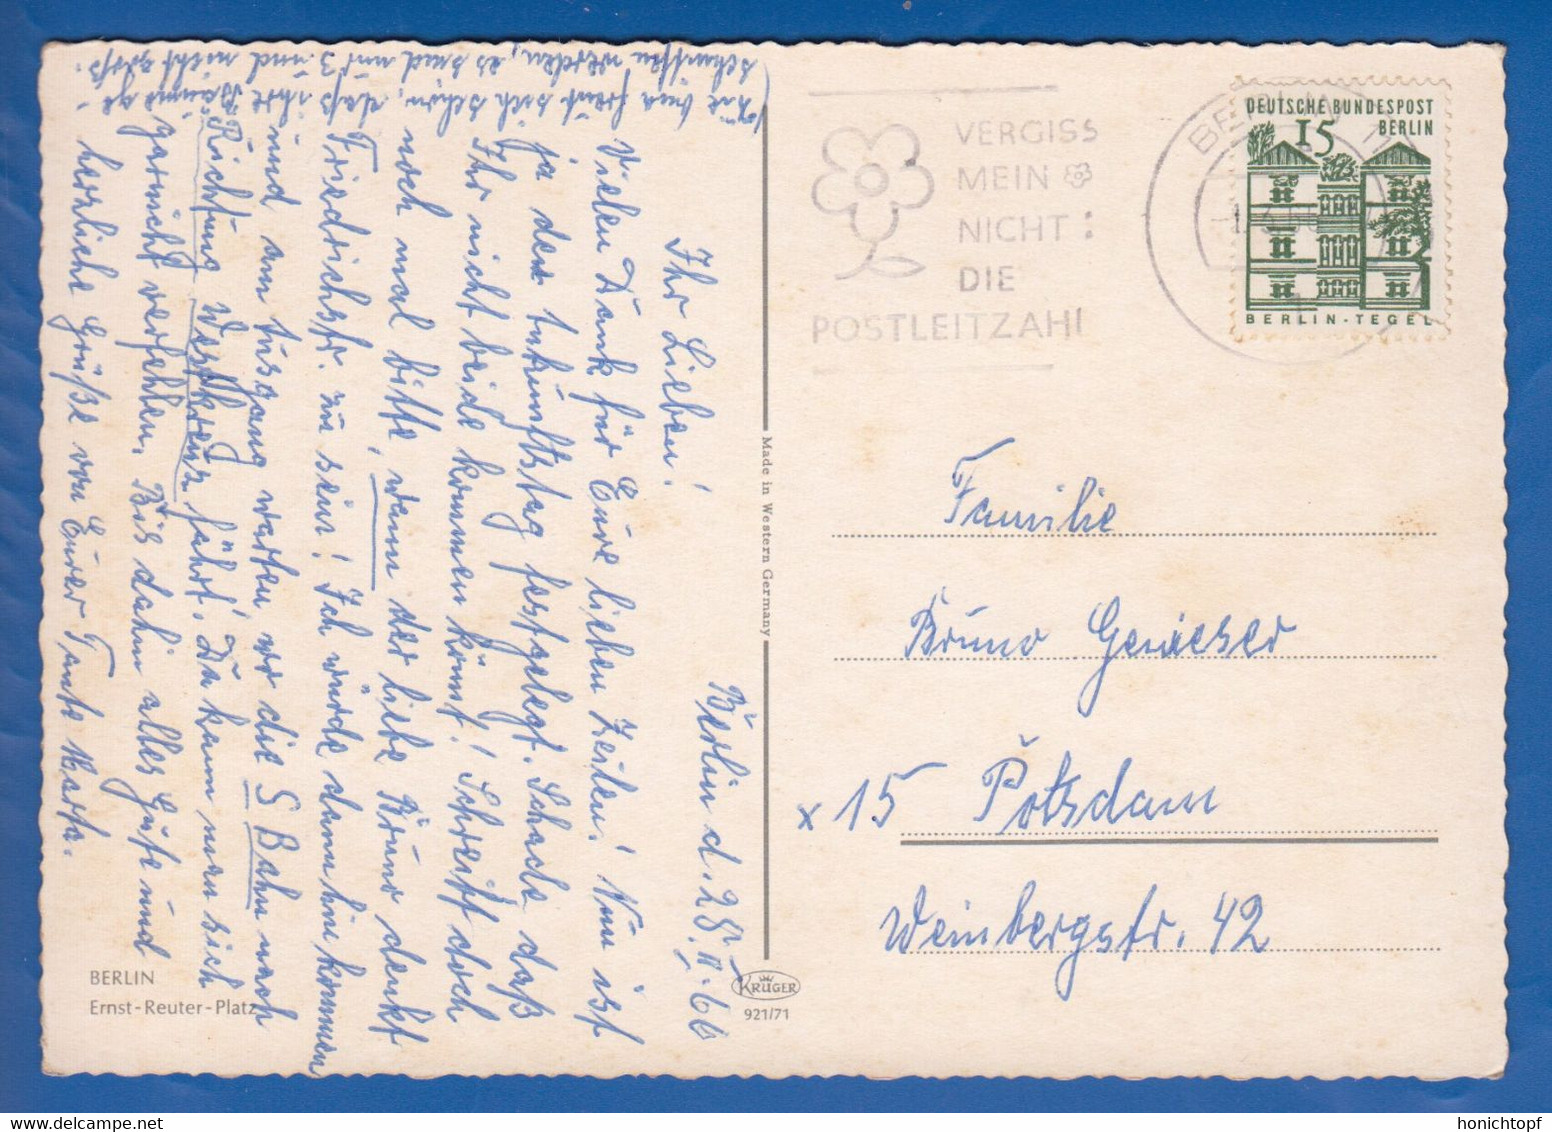 Berlin d. 28.11.66
Ihr Lieben!
Vielen Dank für Eure lieben Zeilen! Nun ist
ja der Ankunftstag festgelegt. Schade daß
Ihr nicht beide kommen könnt! Schreibt doch
noch mal bitte, wann der liebe Bruno denkt
Friedrichstr. zu sein! Ich würde dann hinkommen
und am Ausgang warten, wo die S Bahn nach
Richtung Westkreuz fährt. Da kann man sich
garnicht verfehlen. Bis dahin alles Gute und
herzliche Grüße von Eurer Tante Marta.
freut sich schon, daß ihre Bäume ge-
schnitten werden, es sind nur 3 und nicht groß.
BERLIN
Ernst-Reuter-Platz
Made in Western Germany
KRÜGER
921/71
VERGISS
MEIN
NICHT:
DIE
POSTLEITZAHL
BERLIN 11
DEUTSCHE BUNDESPOST
BERLIN
15
BERLIN·TEGEL
Familie
Bruno
x 15 Potsdam
Weinbergstr. 42
honichtopf